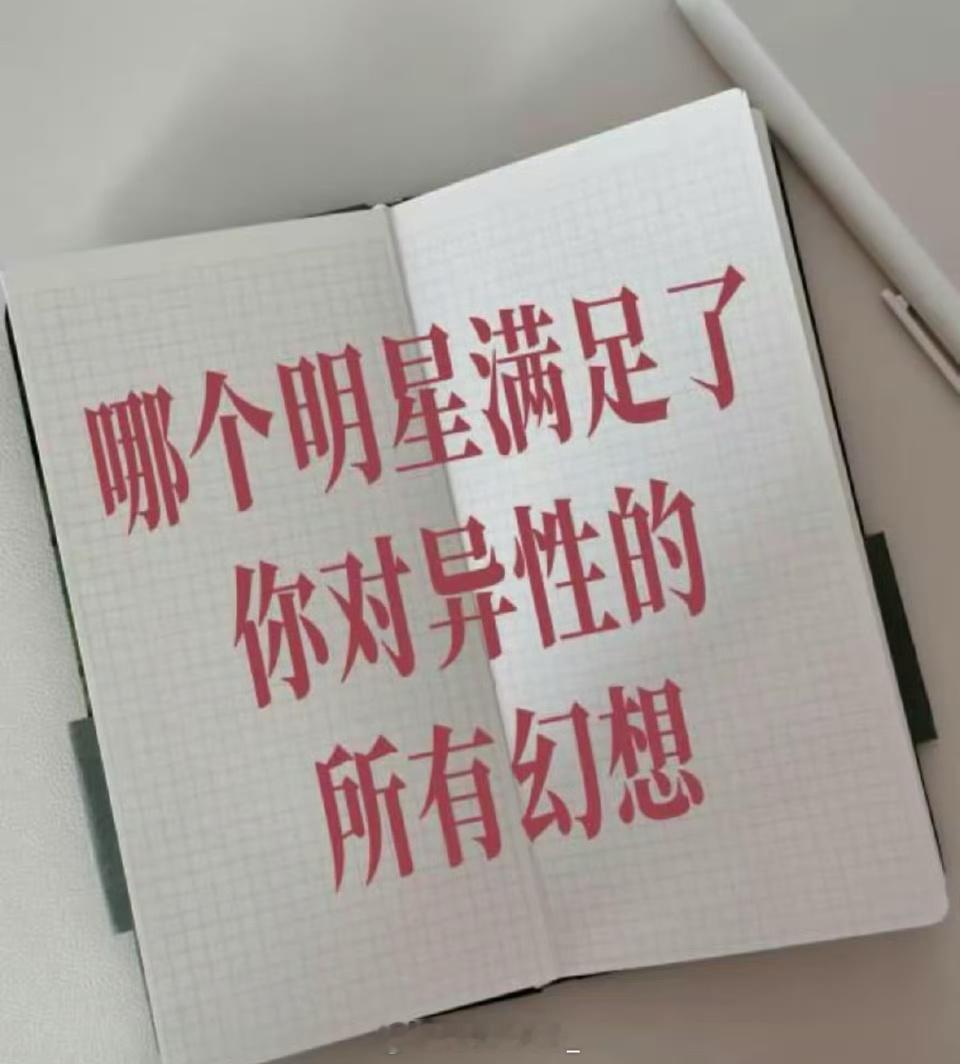 哪个明星满足了
你对异性的
所有幻想